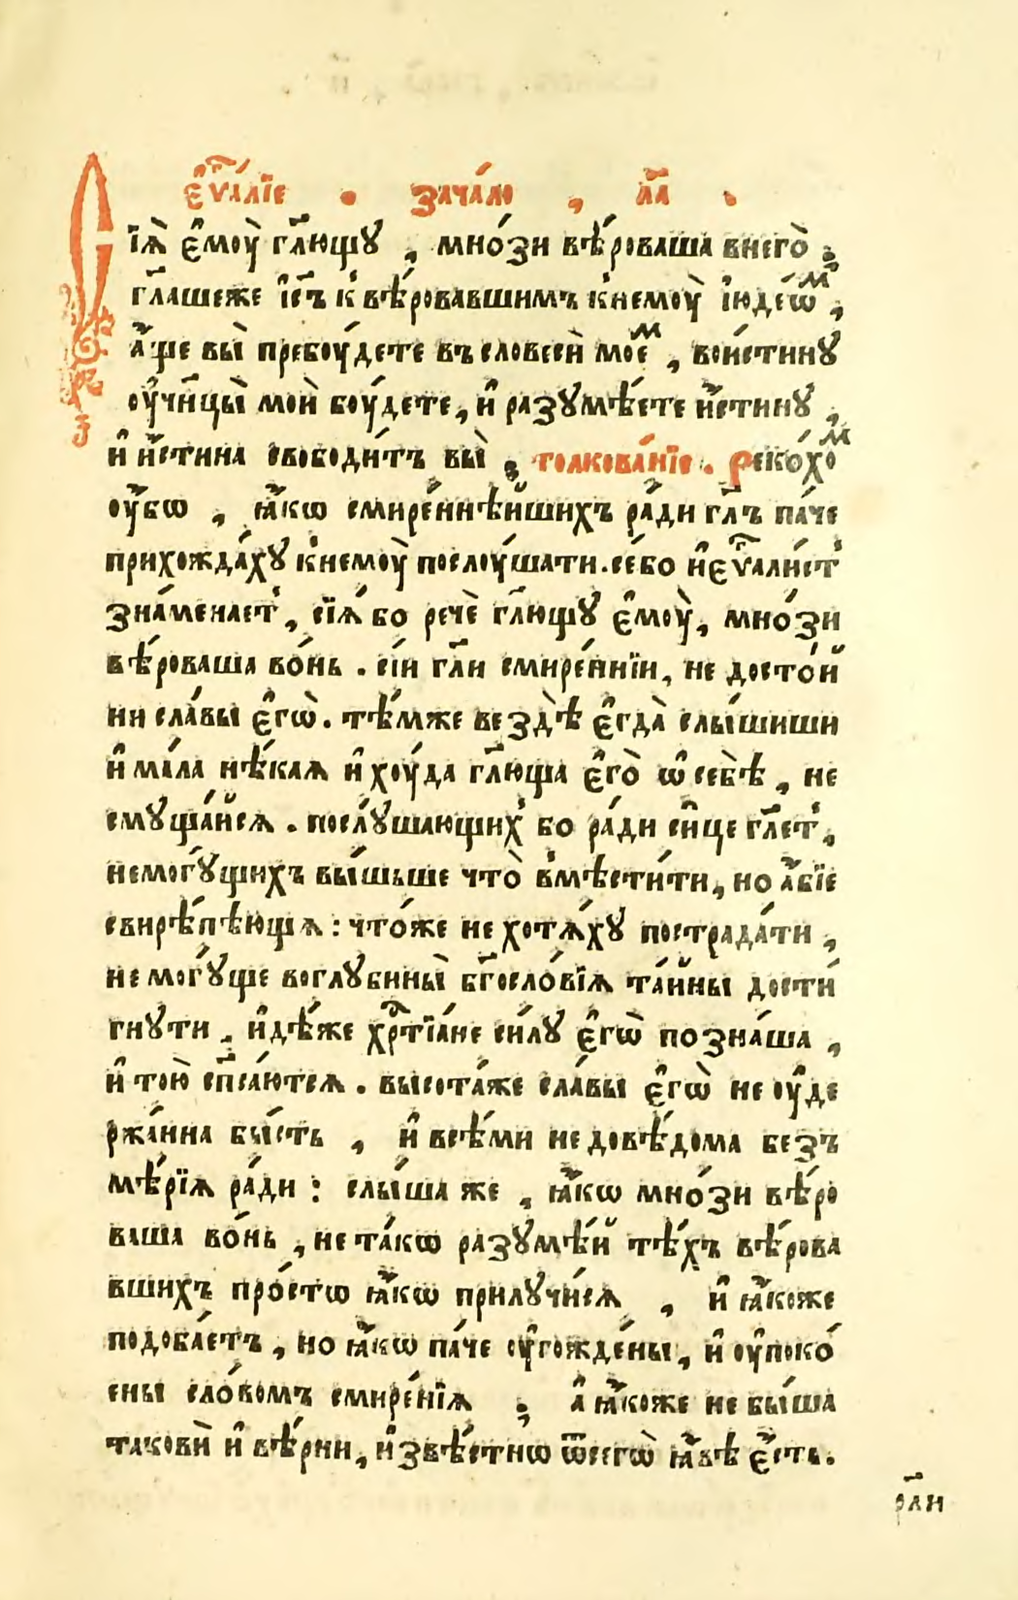 є҆ѵⷢ҇алїе . зача́ло , л҃а .
Сїѧ̀ є҆моу̀ гл҃ющꙋ , мно́зи вѣ́роваша внего̀ ;
гл҃ашеже і҆с҃ъ к̾ вѣ́ровавшимъ к̾немоу̀ і҆юдє́ѡⷨ ,
а҆́ще вы̀ пребоу́дете въ словесѝ моеⷨ҇ , вои́стинꙋ
оу҆чн҃цы̀ моѝ боу́дете , и҆ разꙋмѣ́ете и҆́стинꙋ ,
и҆ и҆́стина свободи́тъ вы̀ ; толкова́нїе . Реко́хоⷨ
оу҆́бѡ , ꙗ҆́кѡ смире́ннѣйшихъ ра́ди гл҃ъ па́че
прихожда́хꙋ к̾немоу̀ послоу́шати . се́бо и҆ є҆ѵⷢ҇али́ст̾
зна́менает̾ , сїѧ́ бо речѐ гл҃ющꙋ є҆моу̀ , мно́зи
вѣ́роваша во́нь . сі́и гл҃и смире́ннїи , не досто́й
ни сла́вы є҆гѡ̀ . тѣ́мже вездѣ̀ є҆гда̀ слы́шиши
и҆ ма́ла нѣ́каѧ и҆ хоу́да гл҃юща є҆го̀ ѡ҆ себѣ̀ , не
смꙋща́йсѧ . послꙋ́шающих̾ бо ра́ди си́це гл҃ет̾ ,
немогꙋ́щихъ вы́шьше что̀ в̾мѣсти́ти , но а҆́бїе
свирѣ́пѣющѧ : что́же не хотѧ́хꙋ пострада́ти ,
не могꙋ́ще воглꙋбины̀ бг҃осло́вїѧ та́йны дости́
гнꙋти , и҆дѣ́же хрⷭ҇тїа́не си́лꙋ є҆гѡ̀ позна́ша ,
и҆ то́ю сп҃са́ютсѧ . высота́же сла́вы є҆гѡ̀ не оу҆де
ржа́нна бы́сть , и҆ всѣ́ми недовѣ́дома без̾
мѣ́рїѧ ра́ди : слы́ша же , ꙗ҆́кѡ мно́зи вѣ́ро
ваша во́нь , не та́кѡ разꙋмѣ́й тѣ́хъ вѣ́рова
вшихъ про́стѡ ꙗ҆́кѡ прилꙋчи́сѧ , и҆ ꙗ҆́коже
подоба́етъ , но ꙗ҆́кѡ па́че оу҆гожде́ны , и҆ оу҆поко́
ены сло́вомъ смире́нїѧ ; а҆ ꙗ҆́коже не бы́ша
такови́ и҆ вѣ́рни , и҆звѣ́стнѡ ѿсегѡ̀ ꙗ҆́вѣ є҆́сть .
гл҃и